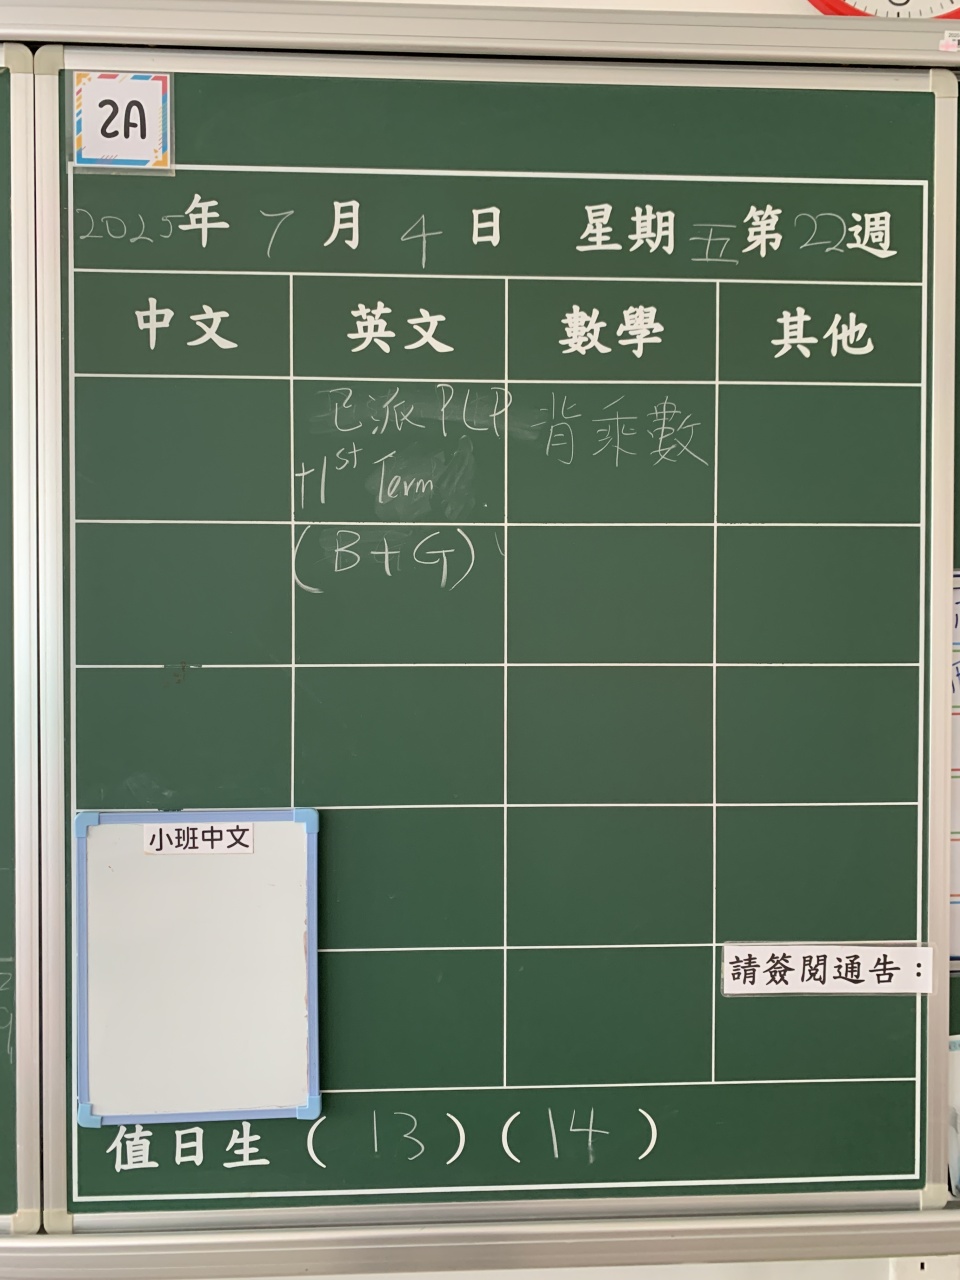 2A
2025年 7月 4日 星期五第22週
中文 英文 數學 其他
已派 PLP
+1st Term
(B+G)
背乘數
小班中文
請簽閱通告：
值日生 (13)(14)